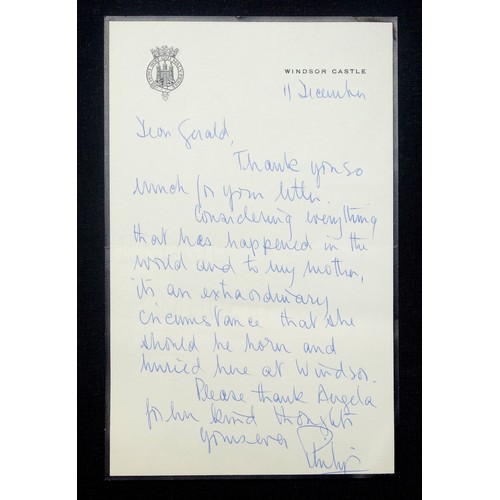 WINDSOR CASTLE
11 December
Dear Gerald,
Thank you so
much for your letter.
Considering everything
that has happened in the
world and to my mother,
its an extraordinary
circumstance that she
should be born and
buried here at Windsor.
Please thank Angela
for her kind thoughts
Yours ever
Philip